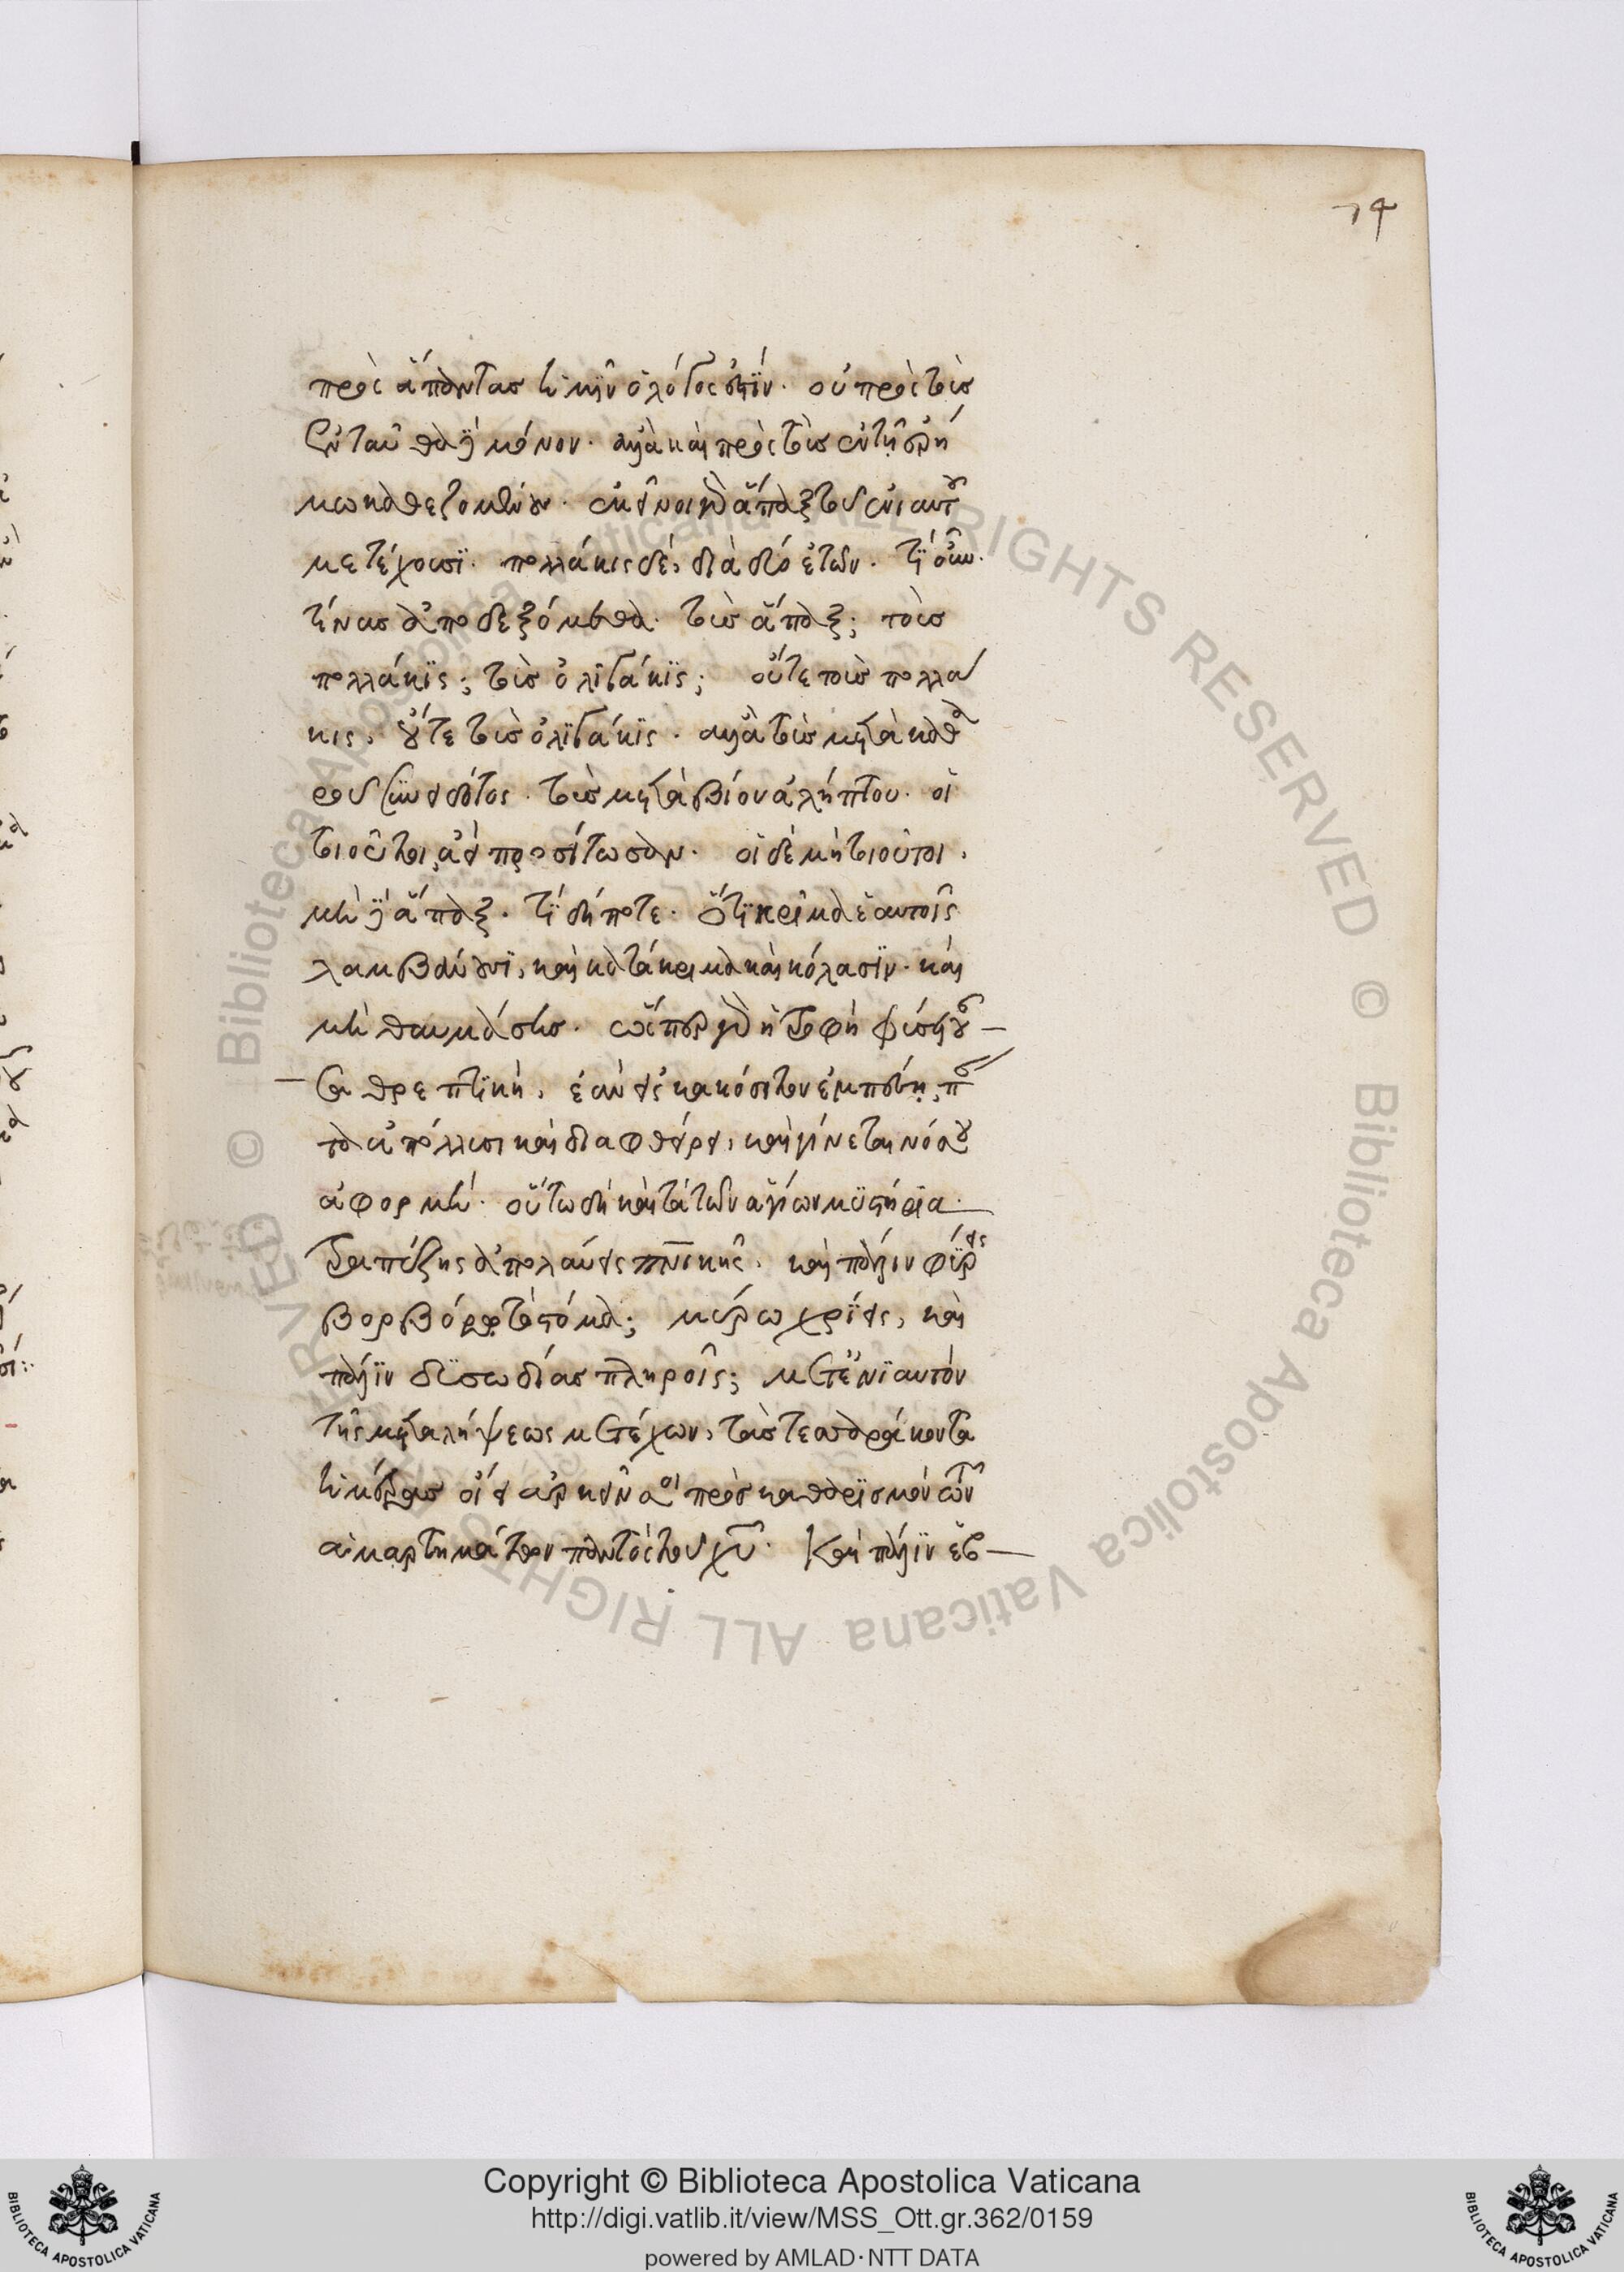 74
πρὸς ἅπαντας ἡμῖν ὁ λόγος ἐστὶν. οὐ πρὸς τοὺς
ἐνταῦθα δὲ μόνον. ἀλλὰ καὶ πρὸς τοὺς ἐν τῇ ἐρή
μω καθεζομένους. ἐκεῖνοι γὰρ ἅπαξ τοῦ ἐνιαυτοῦ
μετέχουσι. πολλάκις δὲ, διὰ δύο ἐτῶν. τί οὖν.
τίνας ἀποδεξόμεθα. τοὺς ἅπαξ; τοὺς
πολλάκις; τοὺς ὀλιγάκις; οὔτε τοὺς πολλά
κις, οὔτε τοὺς ὀλιγάκις. ἀλλὰ τοὺς μετὰ καθα
ροῦ συνειδότος. τοὺς μετὰ βίου ἀλήπτου. οἱ
τοιοῦτοι, ἀεὶ προσίτωσαν. οἱ δὲ μὴ τοιοῦτοι,
μὴ δὲ ἅπαξ. τί δήποτε. ὅτι κρῖμα ἑαυτοῖς
λαμβάνουσι, καὶ κατάκριμα καὶ κόλασιν. καὶ
μὴ θαυμάσης. ὥσπερ γὰρ ἡ τροφὴ φύσει οὖ
σα θρεπτικὴ, ἐὰν εἰς κακόσιτον ἐμπέση, πάν
τα ἀπόλλυσι καὶ διαφθείρει, καὶ γίνεται νόσου
ἀφορμή. οὕτω δὴ καὶ τὰ τῶν ἁγίων μυστήρια.
τραπέζης ἀπολαύεις πνικῆς, καὶ πάλιν φύρεις
βορβόρω τὸ στόμα; μύρω χρίεις, καὶ
πάλιν δυσωδίας πληροῖς; μετ' ἐνιαυτὸν
τῆς μεταλήψεως μετέχων, τὰς τεσσαράκοντα
ἡμέρας οἴει ἀρκεῖν σοι πρὸς καθαρισμὸν τῶν
ἁμαρτημάτων παντὸς τοῦ χρόνου. Καὶ πάλιν ἑβ
Copyright © Biblioteca Apostolica Vaticana
http://digi.vatlib.it/view/MSS_Ott.gr.362/0159
powered by AMLAD·NTT DATA